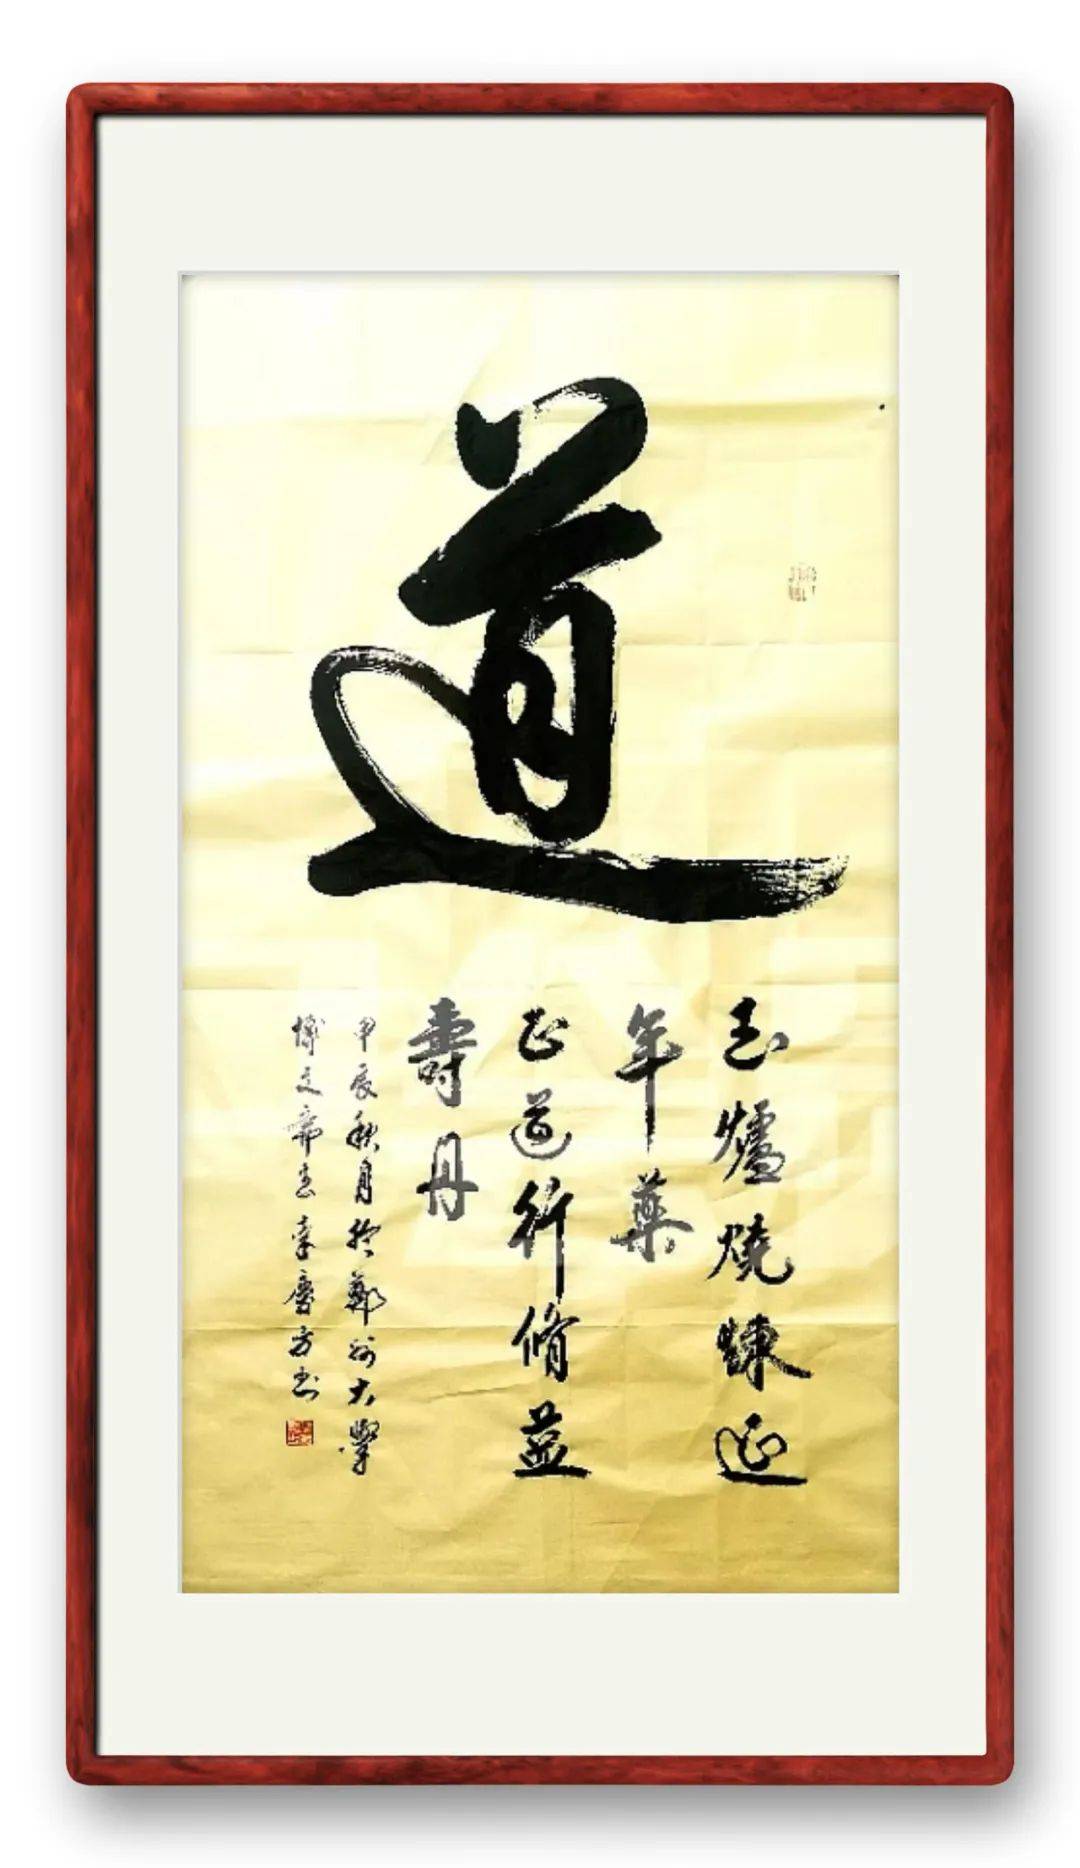 道
玉爐燒鍊延
年藥
正道行修益
壽丹
甲辰秋月於鄭州大學
博文齋主李慶方書